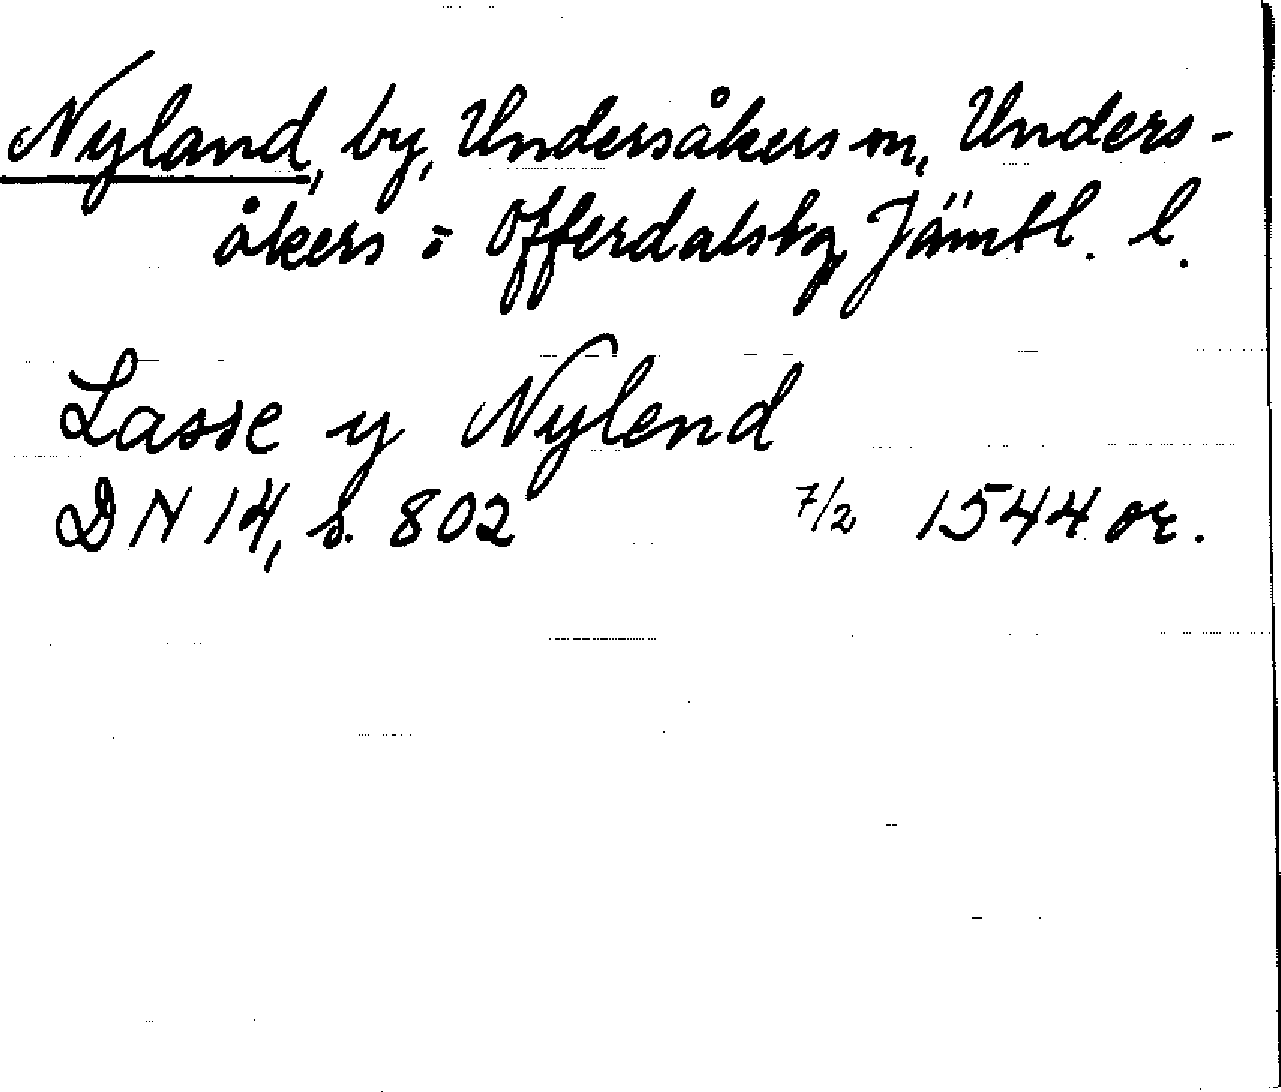 Nyland, by, Undersåkers sn, Unders-
åkers o Offerdals tg, Jämtl. l.
Lasse y Nylend
DN 14, s. 802 7/2 1544 or.